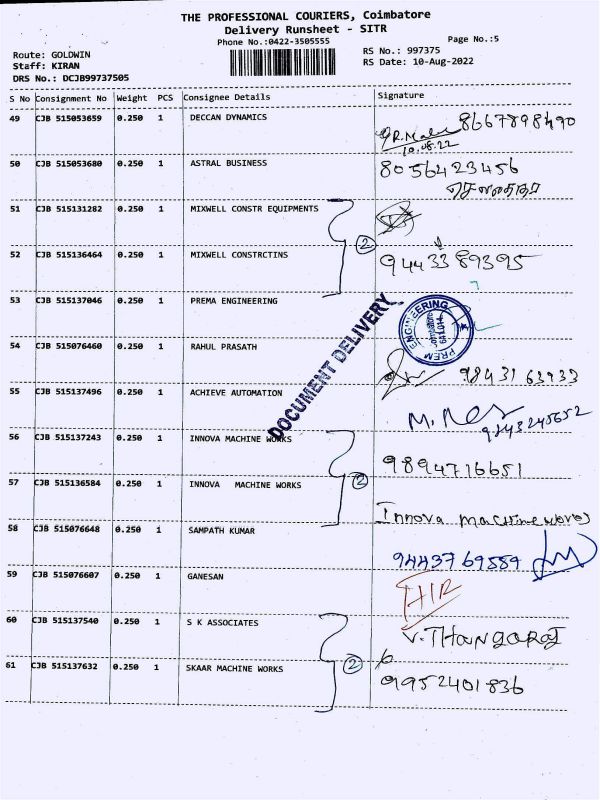 THE PROFESSIONAL COURIERS, Coimbatore
Delivery Runsheet - SITR
Phone No.:0422-3505555
Page No.:5
Route: GOLDWIN
RS No.: 997375
Staff: KIRAN
RS Date: 10-Aug-2022
DRS No.: DCJB99737505
S No Consignment No Weight PCS Consignee Details Signature
49 CJB 515053659 0.250 1 DECCAN DYNAMICS 8667898490
10.08.22
50 CJB 515053680 0.250 1 ASTRAL BUSINESS 8056423456
51 CJB 515131282 0.250 1 MIXWELL CONSTR EQUIPMENTS
2
52 CJB 515136464 0.250 1 MIXWELL CONSTRCTINS 9443389395
53 CJB 515137046 0.250 1 PREMA ENGINEERING
PREM ENGINEERING
DOCUMENT DELIVERY
54 CJB 515076460 0.250 1 RAHUL PRASATH 9843163933
55 CJB 515137496 0.250 1 ACHIEVE AUTOMATION
9843245652
56 CJB 515137243 0.250 1 INNOVA MACHINE WORKS 9894716651
2
57 CJB 515136584 0.250 1 INNOVA MACHINE WORKS Innova machine works
58 CJB 515076648 0.250 1 SAMPATH KUMAR 9443769559
59 CJB 515076607 0.250 1 GANESAN
60 CJB 515137540 0.250 1 S K ASSOCIATES V. THANGARAJ
2
61 CJB 515137632 0.250 1 SKAAR MACHINE WORKS 9952401836